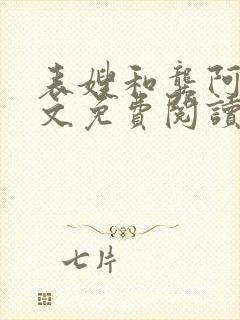 表嫂和龚阿
文免費閱讀
七片